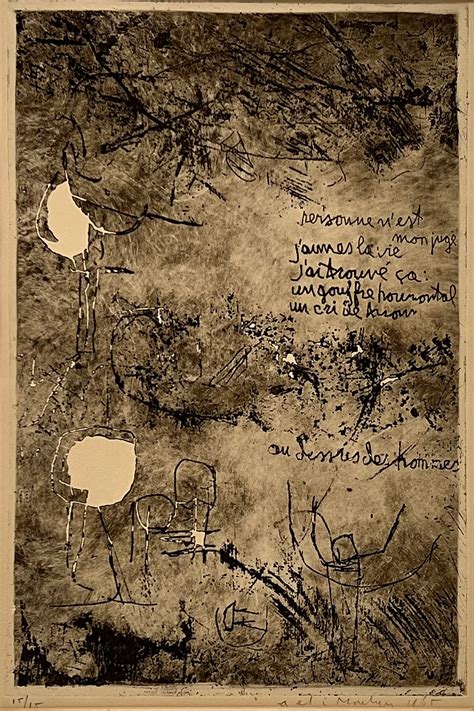 personne n'est
mon juge
j'aimes la vie
j'ai trouvé ça:
un gouffre horizontal
un cri de
au dessus des hommes
15/15